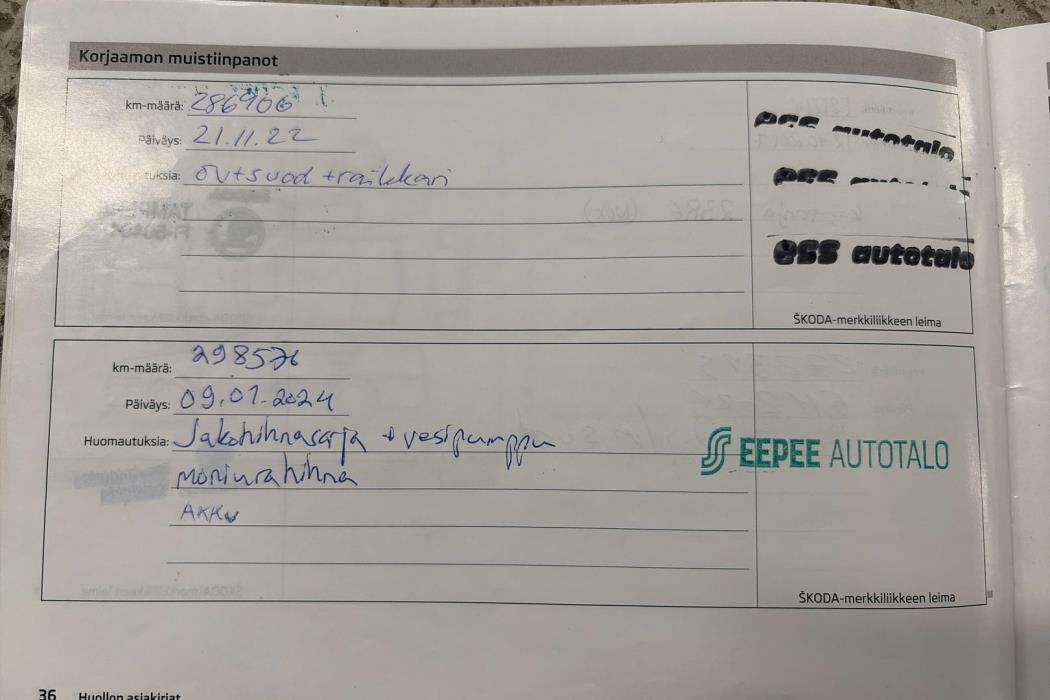 Korjaamon muistiinpanot
km-määrä: 286906
Päiväys: 21.11.22
öv+suod + raikkari
ess autotalo
ess
ess autotalo
ŠKODA-merkkiliikkeen leima
km-määrä: 298576
Päiväys: 09.01.2024
Huomautuksia: Jakohihnasarja + vesipumppu
moniurahihna
AKKU
EEPEE AUTOTALO
ŠKODA-merkkiliikkeen leima
36 Huollon asiakirjat